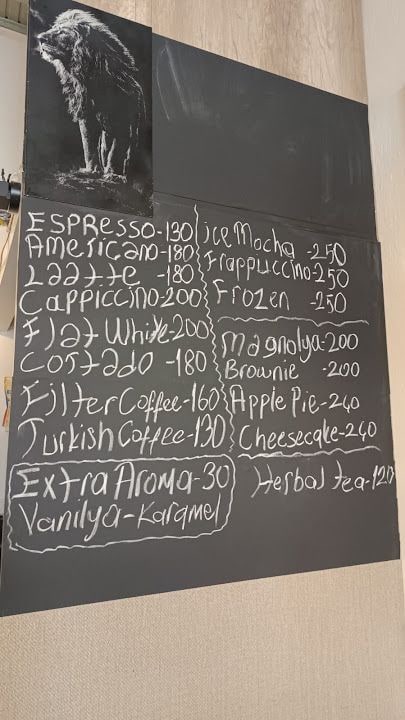 ESPResso-130
Americano-180
Laatte -180
Cappiccino-200
Flat White-200
Costado -180
Filter Coffee-160
Turkish Coffee-130
Extra Aroma-30
Vanilya-Karamel
ice Mocha -250
Frappuccino-250
Frozen -250
Magnolya-200
Brownie -200
Apple Pie-240
Cheesecake-240
Herbal tea-120